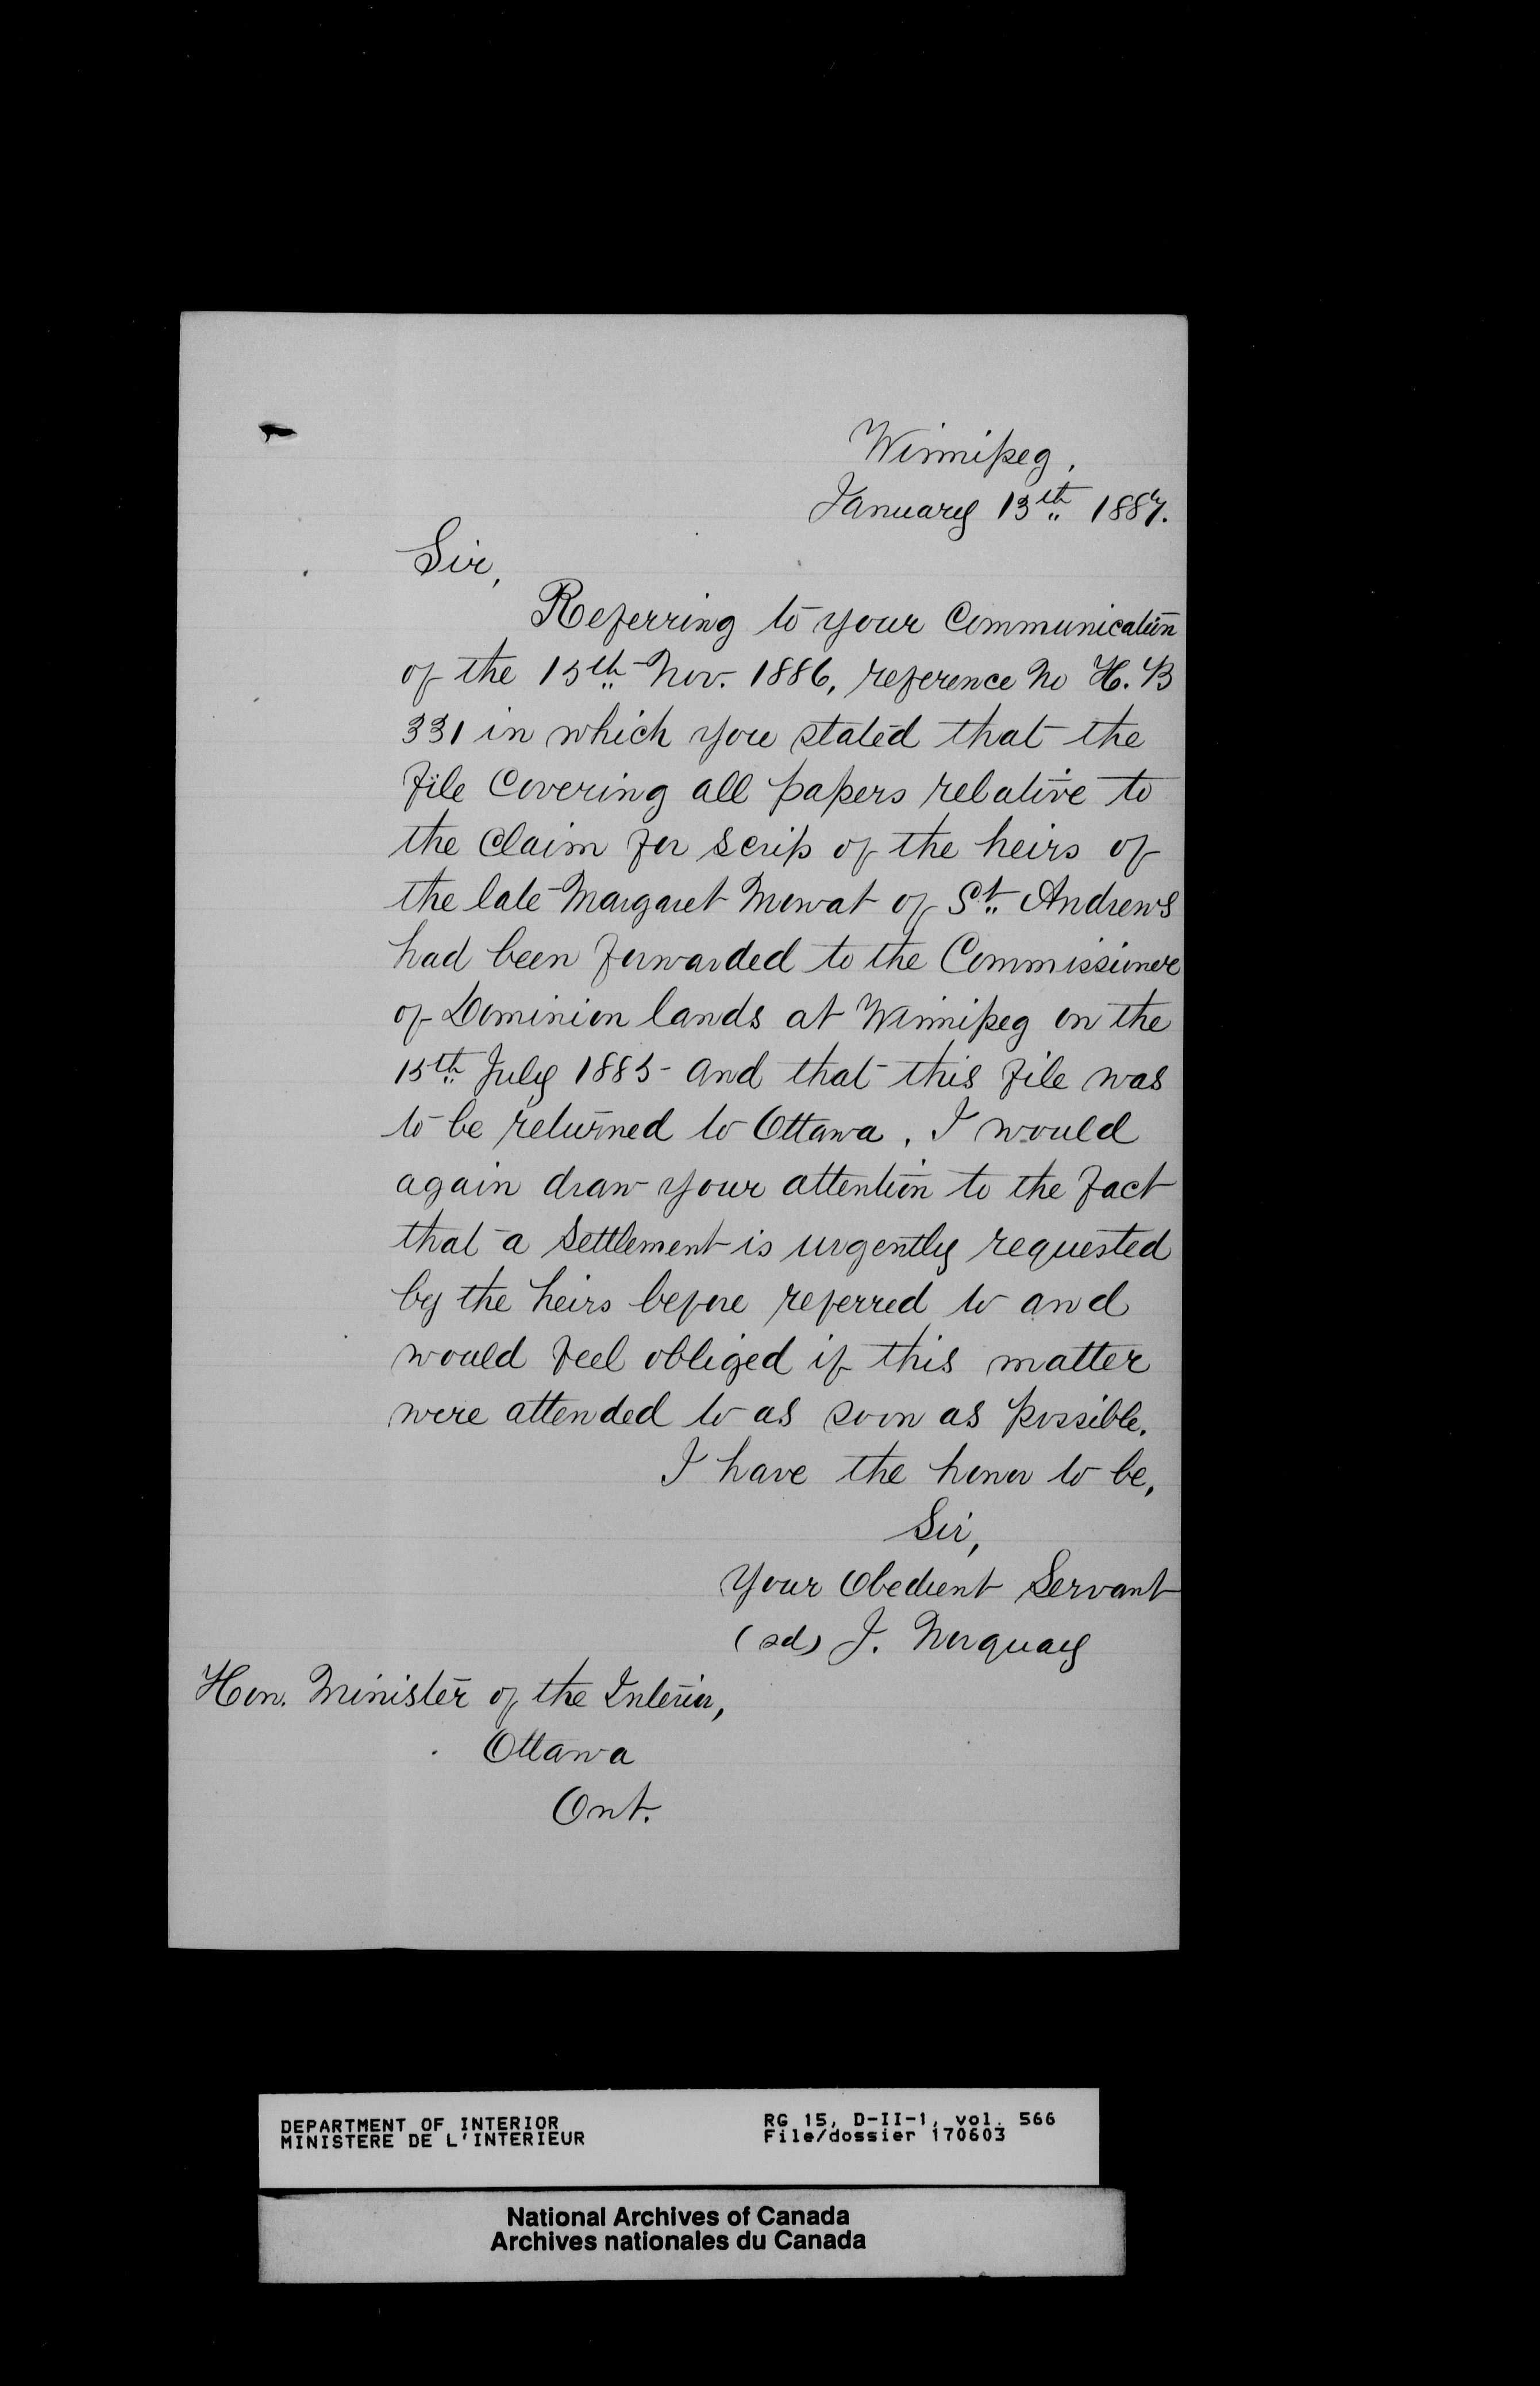 Winnipeg,
January 13th 1887.
Sir,
Referring to your Communication
of the 15th Nov. 1886, reference No H. B
331 in which you stated that the
file Covering all papers relative to
the Claim for scrip of the heirs of
the late Margaret Mowat of St. Andrews
had been forwarded to the Commissioner
of Dominion lands at Winnipeg on the
15th July 1885 and that this file was
to be returned to Ottawa. I would
again draw your attention to the fact
that a settlement is urgently requested
by the heirs before referred to and
would feel obliged if this matter
were attended to as soon as possible.
I have the honor to be,
Sir,
Your Obedient Servant
(sd) J. Norquay
Hon. Minister of the Interior,
Ottawa
Ont.
DEPARTMENT OF INTERIOR
MINISTERE DE L'INTERIEUR
RG 15, D-II-1, vol. 566
File/dossier 170603
National Archives of Canada
Archives nationales du Canada